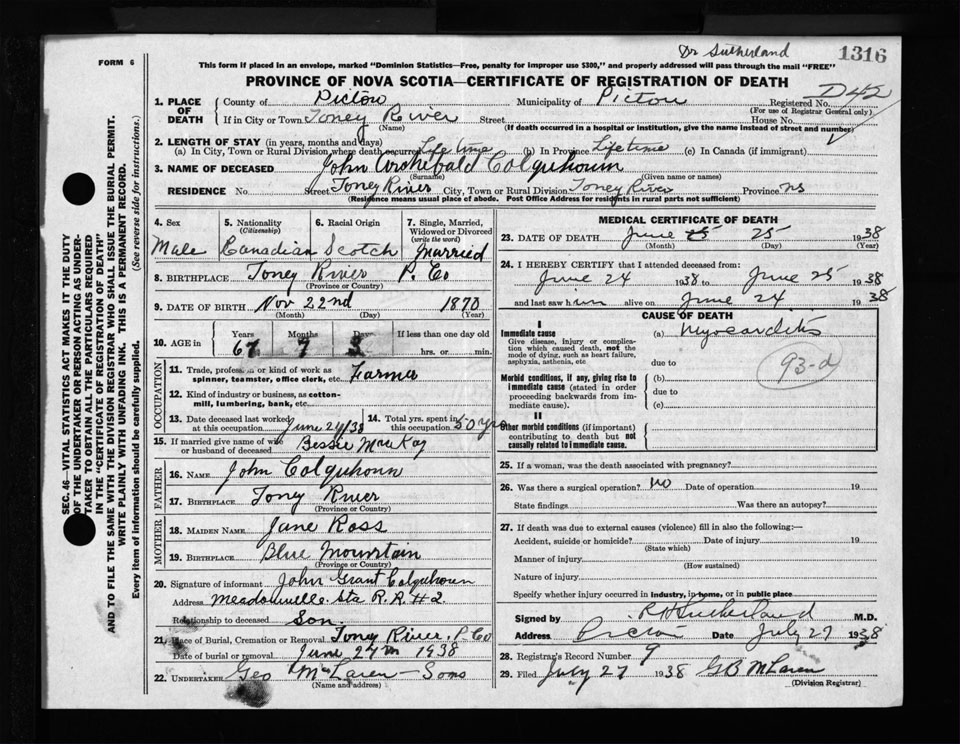 Dr Sutherland
1316
FORM 6
This form if placed in an envelope, marked "Dominion Statistics—Free, penalty for improper use $300," and properly addressed will pass through the mail "FREE"
PROVINCE OF NOVA SCOTIA—CERTIFICATE OF REGISTRATION OF DEATH
D42
1. PLACE OF DEATH
County of Pictou Municipality of Pictou Registered No.
(For use of Registrar General only)
If in City or Town Toney River Street House No.
(Name) (If death occurred in a hospital or institution, give the name instead of street and number)
2. LENGTH OF STAY (in years, months and days)
(a) In City, Town or Rural Division where death occurred Life time (b) In Province Lifetime (c) In Canada (if immigrant)
3. NAME OF DECEASED John Archibald Colquhoun
(Surname) (Given name or names)
RESIDENCE No. Street Toney River City, Town or Rural Division Toney River Province NS
(Residence means usual place of abode. Post Office Address for residents in rural parts not sufficient)
4. Sex 5. Nationality 6. Racial Origin 7. Single, Married, Widowed or Divorced
(Citizenship) (write the word)
Male Canadian Scotch Married
8. BIRTHPLACE Toney River P. Co
(Province or Country)
9. DATE OF BIRTH Nov 22nd 1870
(Month) (Day) (Year)
10. AGE in Years Months Days If less than one day old
67 7 3 hrs. or min.
OCCUPATION
11. Trade, profession or kind of work as spinner, teamster, office clerk, etc. Farmer
12. Kind of industry or business, as cotton-mill, lumbering, bank, etc.
13. Date deceased last worked at this occupation June 24/38
14. Total yrs. spent in this occupation 50 yrs
15. If married give name of wife or husband of deceased Bessie MacKay
FATHER
16. NAME John Colquhoun
17. BIRTHPLACE Tony River
(Province or Country)
MOTHER
18. MAIDEN NAME Jane Ross
19. BIRTHPLACE Blue Mountain
(Province or Country)
20. Signature of informant John Grant Colquhoun
Address Meadowville Sta R.R #2
Relationship to deceased Son
21. Place of Burial, Cremation or Removal Toney River, P. Co
Date of burial or removal June 27th 1938
22. UNDERTAKER Geo McLaren Sons
(Name and address)
MEDICAL CERTIFICATE OF DEATH
23. DATE OF DEATH June 25 25 1938
(Month) (Day) (Year)
24. I HEREBY CERTIFY that I attended deceased from:
June 24 1938 to June 25 1938
and last saw him alive on June 24 1938
CAUSE OF DEATH
I
Immediate cause (a) Myocarditis
Give disease, injury or complication which caused death, not the mode of dying, such as heart failure, asphyxia, asthenia, etc
due to
93-d
Morbid conditions, if any, giving rise to immediate cause (stated in order proceeding backwards from immediate cause).
(b)
due to
(c)
II
Other morbid conditions (if important) contributing to death but not causally related to immediate cause.
25. If a woman, was the death associated with pregnancy?
26. Was there a surgical operation? no Date of operation 19
State findings Was there an autopsy?
27. If death was due to external causes (violence) fill in also the following:—
Accident, suicide or homicide? Date of injury 19
(State which)
Manner of injury
(How sustained)
Nature of injury
Specify whether injury occurred in industry, in home, or in public place
Signed by R H Sutherland M.D.
Address Pictou Date July 27 1938
28. Registrar's Record Number 9
29. Filed July 27 1938 G B McLaren
(Division Registrar)
SEC. 46—VITAL STATISTICS ACT MAKES IT THE DUTY
OF THE UNDERTAKER OR PERSON ACTING AS UNDER-
TAKER TO OBTAIN ALL THE PARTICULARS REQUIRED
IN THE "CERTIFICATE OF REGISTRATION OF DEATH"
AND TO FILE THE SAME WITH THE DIVISION REGISTRAR WHO SHALL ISSUE THE BURIAL PERMIT.
WRITE PLAINLY WITH UNFADING INK. THIS IS A PERMANENT RECORD.
Every item of information should be carefully supplied. (See reverse side for instructions.)